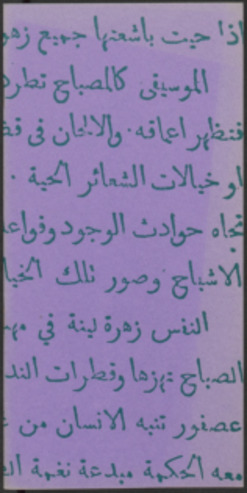 اذا حيت باشعتها جميع زهو
الموسيقى كالمصباح تطرد
فتظهر اعماقه. والالحان في قض
او خيالات الشعائر الحية .
تجاه حوادث الوجود وفواعـ
الاشباح وصور تلك الخيا
النفس زهرة لينة في مهـ
الصباح تهزها وقطرات الند
عصفور تنبه الانسان من غ
معه الحكمة مبدعة نغمة الع